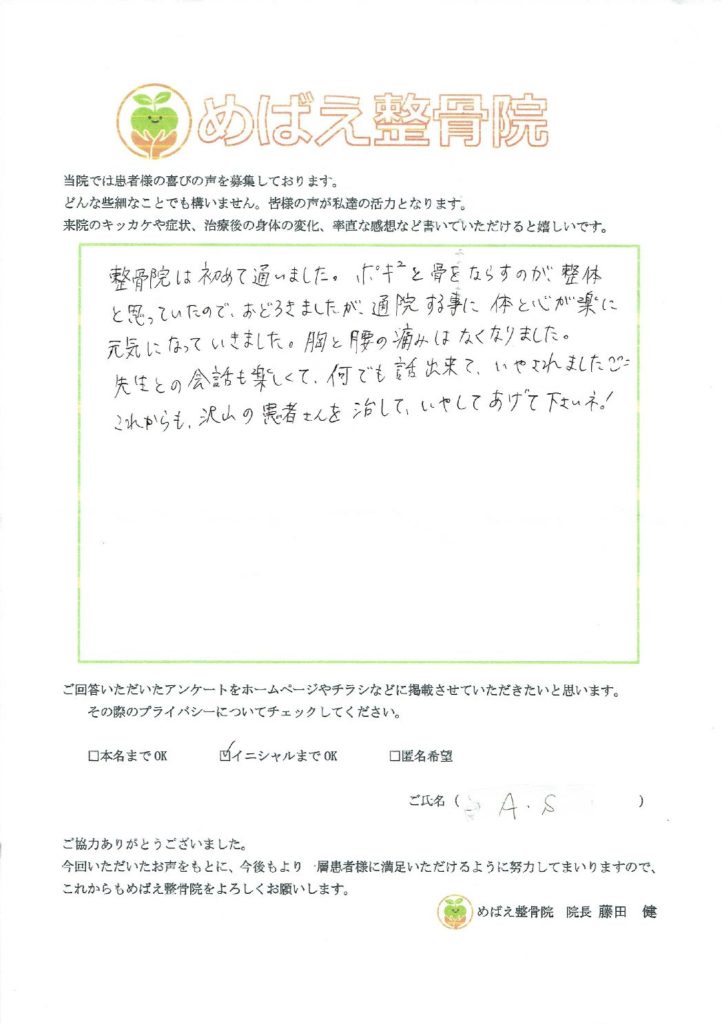 めばえ整骨院
当院では患者様の喜びの声を募集しております。
どんな些細なことでも構いません。皆様の声が私達の活力となります。
来院のキッカケや症状、治療後の身体の変化、率直な感想など書いていただけると嬉しいです。
整骨院は初めて通いました。ポキ²と骨をならすのが、整体
と思っていたので、おどろきましたが、通院する事に体と心が楽に
元気になっていきました。胸と腰の痛みはなくなりました。
先生との会話も楽しくて、何でも話出来て、いやされました
これからも、沢山の患者さんを治して、いやしてあげて下さいネ!
ご回答いただいたアンケートをホームページやチラシなどに掲載させていただきたいと思います。
その際のプライバシーについてチェックしてください。
□本名までOK ☑イニシャルまでOK □匿名希望
ご氏名( A.S )
ご協力ありがとうございました。
今回いただいたお声をもとに、今後もより一層患者様に満足いただけるように努力してまいりますので、
これからもめばえ整骨院をよろしくお願いします。
めばえ整骨院 院長 藤田 健